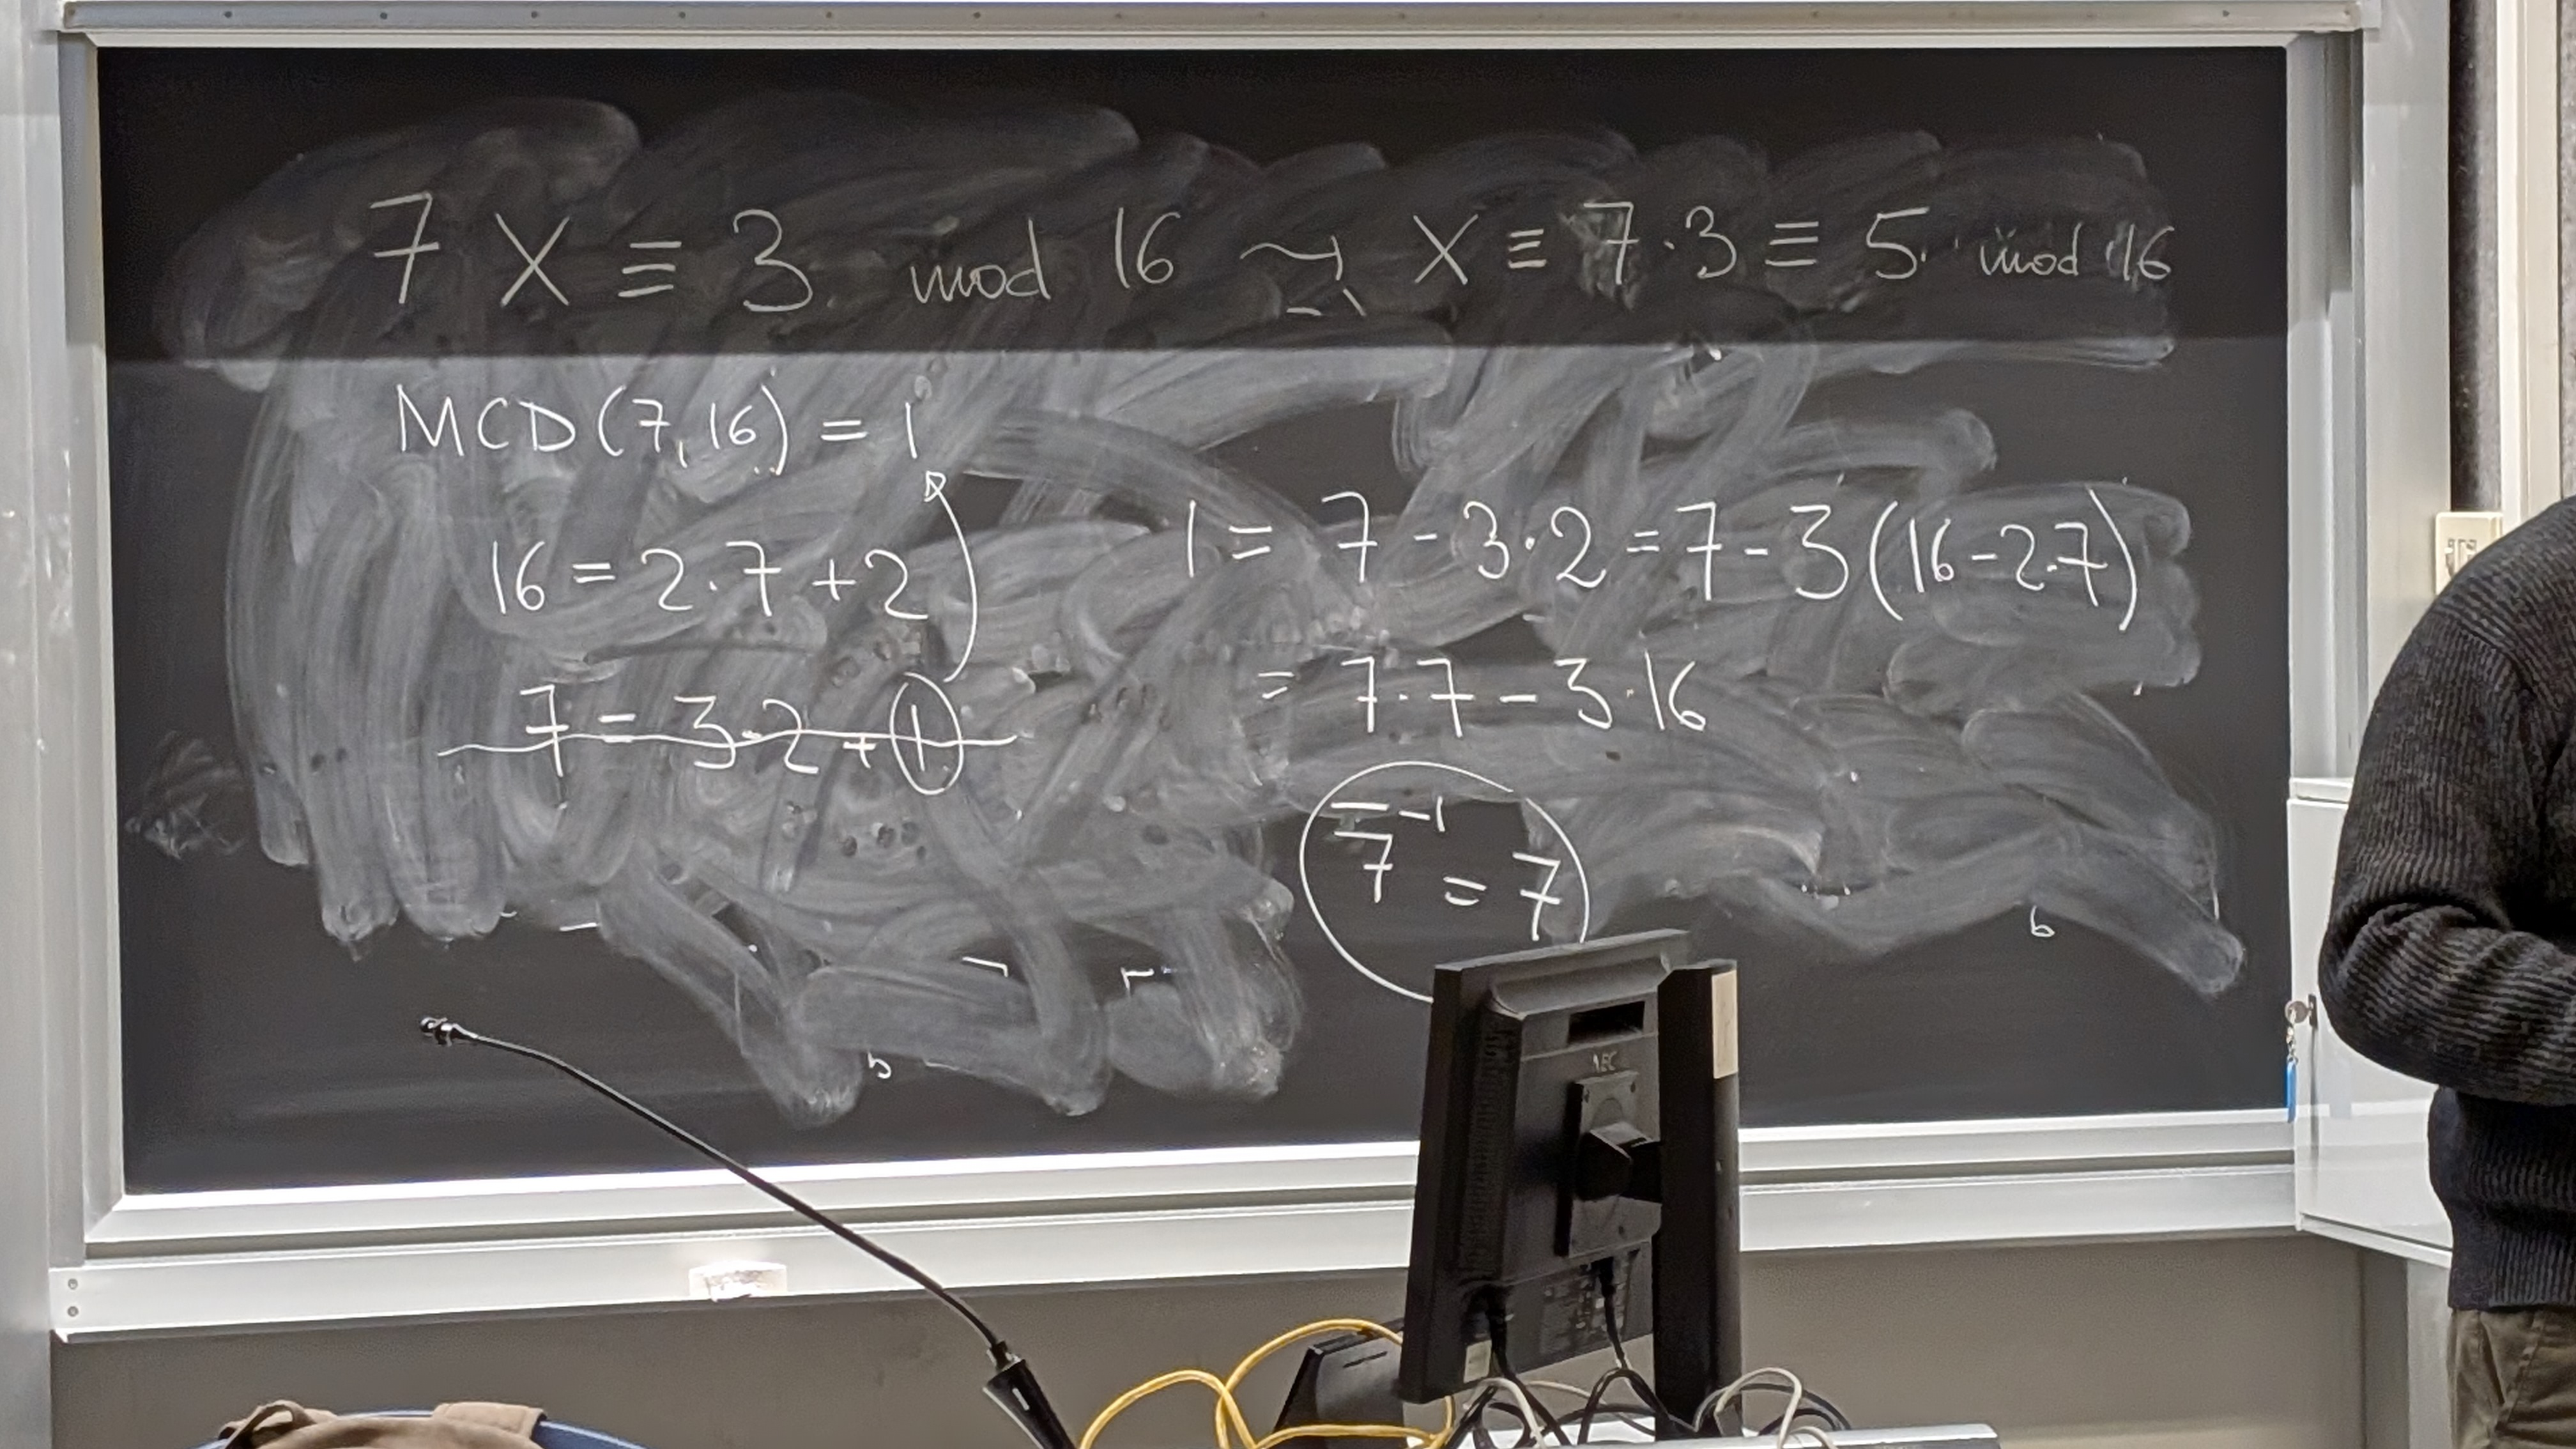 7 X ≡ 3 mod 16 ⤳ X ≡ 7·3 ≡ 5 mod 16
MCD(7,16) = 1
16 = 2·7 + 2
7 = 3·2 + 1
1 = 7 - 3·2 = 7 - 3(16 - 2·7)
= 7·7 - 3·16
7̅⁻¹ = 7